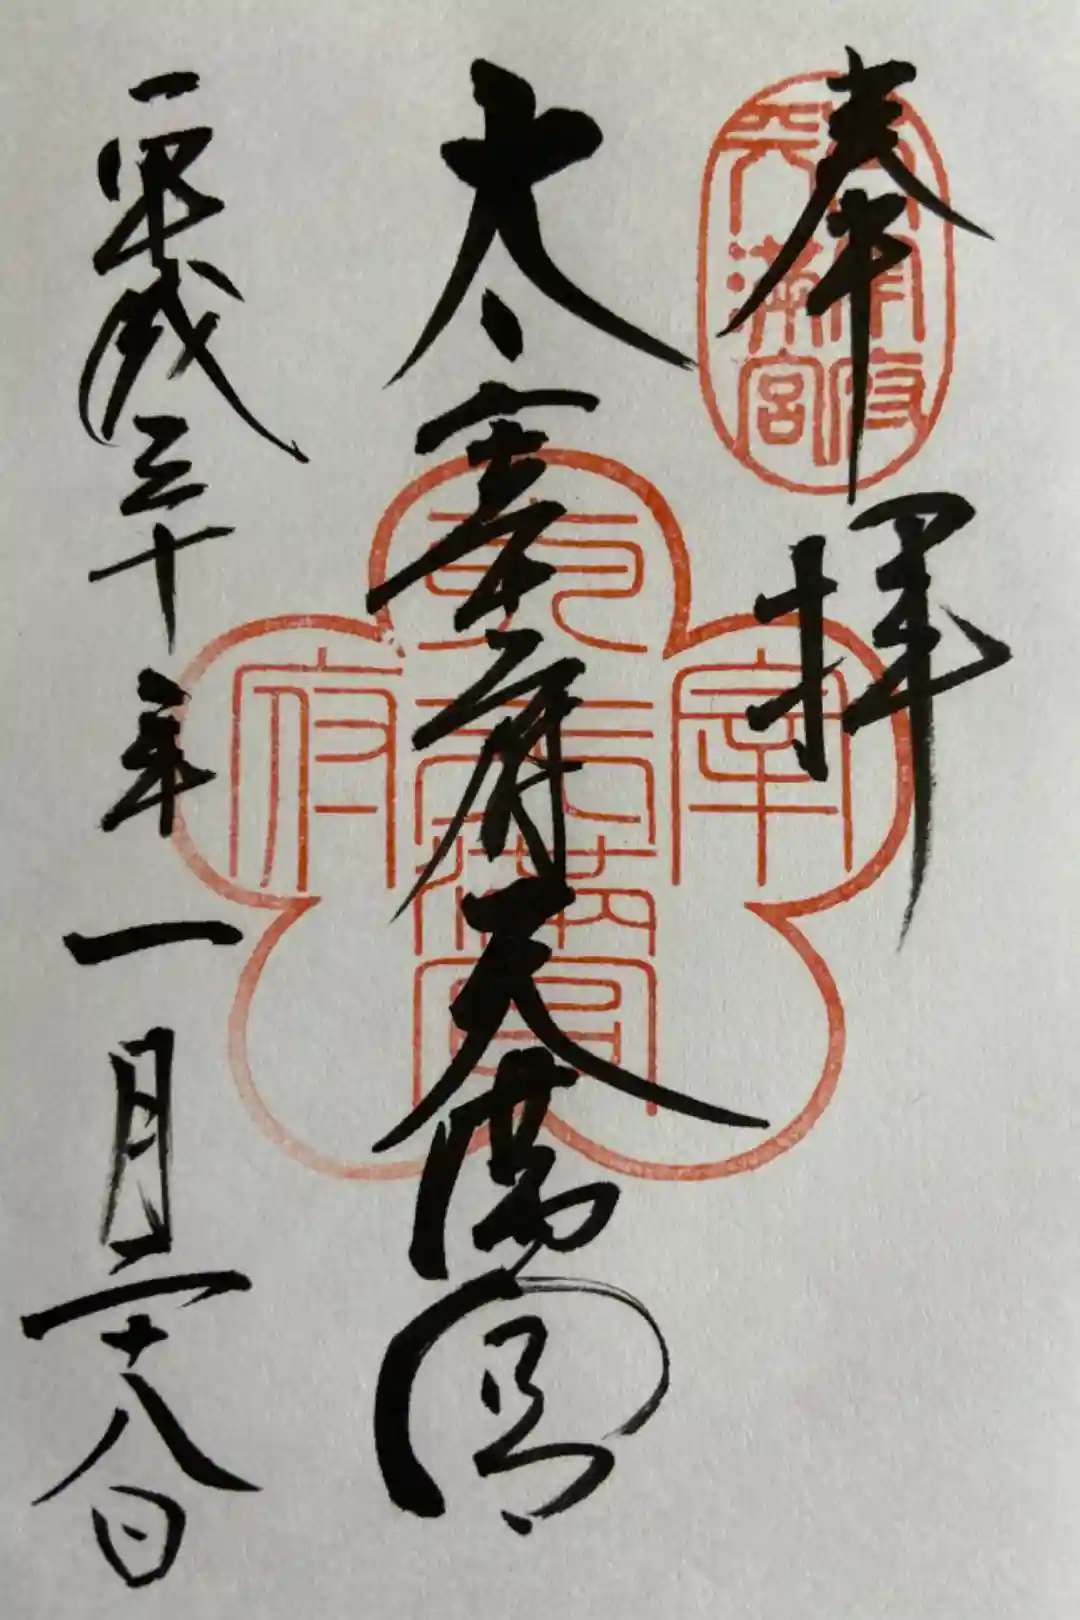 奉拝
太宰府天満宮
平成三十年一月二十八日
太宰府
天満宮
太
宰
府
天満宮